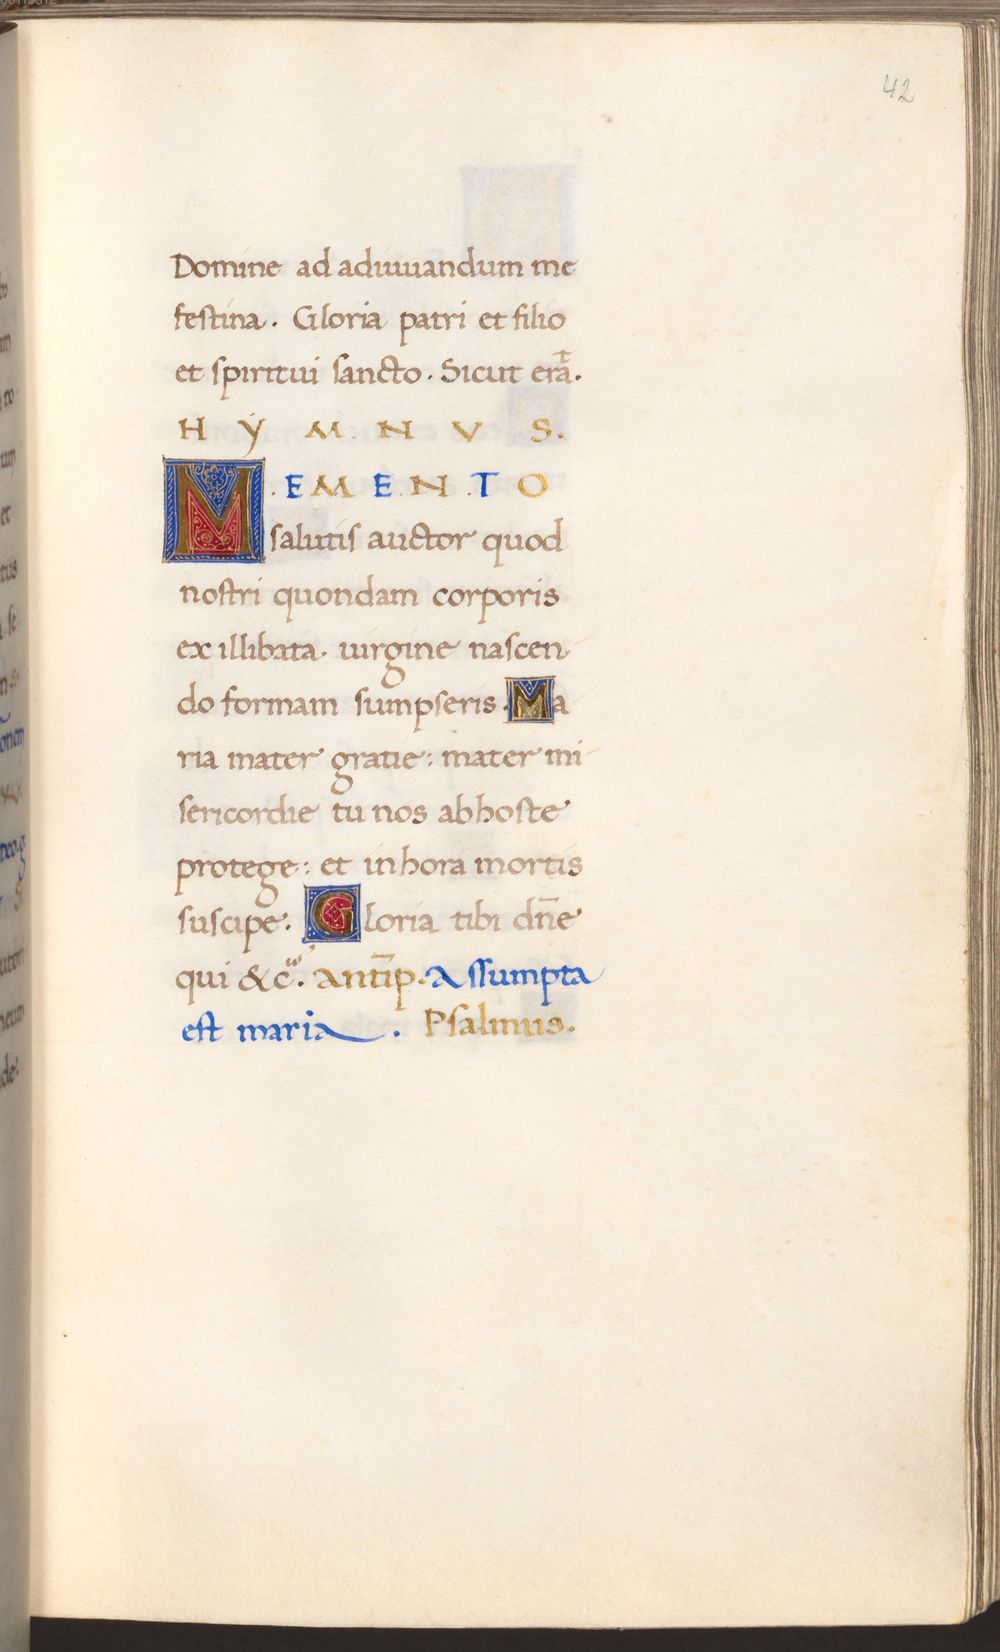 42
Domine ad adiuuandum me
festina. Gloria patri et filio
et spiritui sancto. Sicut erat̄.
HẎMNVS.
MEMENTO
salutis auctor quod
nostri quondam corporis
ex illibata. uirgine nascen
do formam sumpseris. Ma
ria mater gratie: mater mi
sericordie tu nos ab hoste
protege: et in hora mortis
suscipe. Gloria tibi dn̄e
qui &c̄. antīp. Assumpta
est maria. Psalmus.